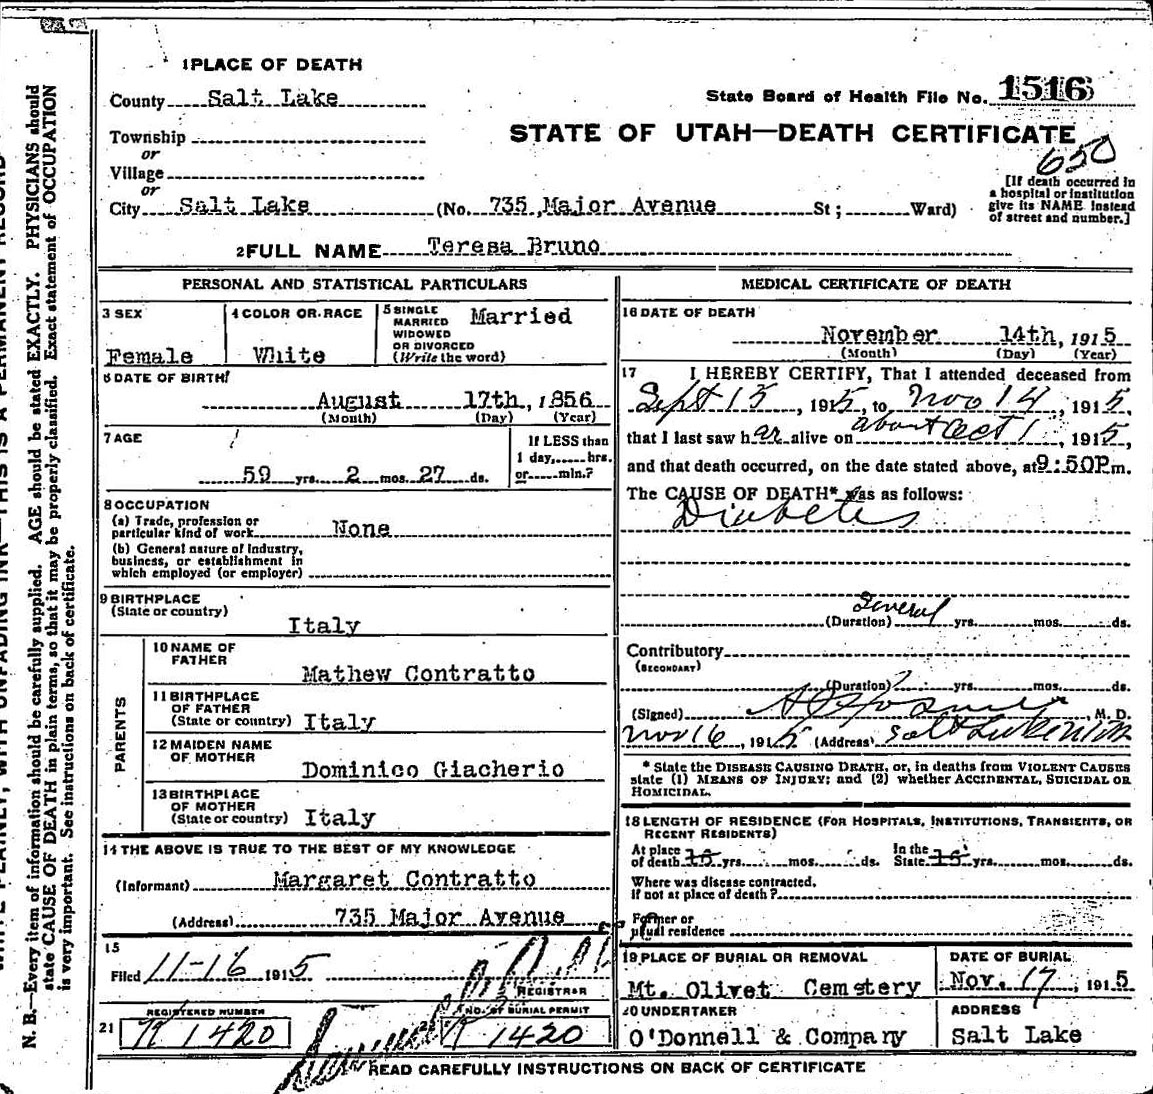 1 PLACE OF DEATH
County Salt Lake
State Board of Health File No. 1516
Township
STATE OF UTAH—DEATH CERTIFICATE
or
650
Village
or
[If death occurred in
a hospital or institution
give its NAME instead
of street and number.]
City Salt Lake (No. 735, Major Avenue St; Ward)
2 FULL NAME Teresa Bruno
PERSONAL AND STATISTICAL PARTICULARS
3 SEX
Female
4 COLOR OR RACE
White
5 SINGLE
MARRIED
WIDOWED
OR DIVORCED
(Write the word)
Married
6 DATE OF BIRTH
August 17th, 1856
(Month) (Day) (Year)
7 AGE
59 yrs. 2 mos. 27 ds.
If LESS than
1 day, hrs.
or min.?
8 OCCUPATION
(a) Trade, profession or
particular kind of work None
(b) General nature of Industry,
business, or establishment in
which employed (or employer)
9 BIRTHPLACE
(State or country)
Italy
PARENTS
10 NAME OF
FATHER
Mathew Contratto
11 BIRTHPLACE
OF FATHER
(State or country) Italy
12 MAIDEN NAME
OF MOTHER
Dominico Giacherio
13 BIRTHPLACE
OF MOTHER
(State or country) Italy
14 THE ABOVE IS TRUE TO THE BEST OF MY KNOWLEDGE
(Informant) Margaret Contratto
(Address) 735 Major Avenue
15
Filed 11-16 1915
REGISTRAR
REGISTERED NUMBER
21 R 1420
NO. OF BURIAL PERMIT
R 1420
MEDICAL CERTIFICATE OF DEATH
16 DATE OF DEATH
November 14th, 1915
(Month) (Day) (Year)
17 I HEREBY CERTIFY, That I attended deceased from
Sept 15, 1915, to Nov 14, 1915,
that I last saw her alive on about Oct 1, 1915,
and that death occurred, on the date stated above, at 9:50P.m.
The CAUSE OF DEATH* was as follows:
Diabetes
Several
(Duration) yrs. mos. ds.
Contributory
(SECONDARY)
(Duration) yrs. mos. ds.
(Signed) M. D.
Nov 16, 1915 (Address) Salt Lake
* State the DISEASE CAUSING DEATH, or, in deaths from VIOLENT CAUSES
state (1) MEANS OF INJURY; and (2) whether ACCIDENTAL, SUICIDAL OR
HOMICIDAL.
18 LENGTH OF RESIDENCE (FOR HOSPITALS, INSTITUTIONS, TRANSIENTS, OR
RECENT RESIDENTS)
At place
of death 15 yrs. mos. ds.
In the
State 15 yrs. mos. ds.
Where was disease contracted,
if not at place of death?
Former or
usual residence
19 PLACE OF BURIAL OR REMOVAL
Mt. Olivet Cemetery
DATE OF BURIAL
Nov. 17, 1915
20 UNDERTAKER
O'Donnell & Company
ADDRESS
Salt Lake
READ CAREFULLY INSTRUCTIONS ON BACK OF CERTIFICATE
WRITE PLAINLY, WITH UNFADING INK—THIS IS A PERMANENT RECORD
N. B.—Every item of information should be carefully supplied. AGE should be stated EXACTLY. PHYSICIANS should
state CAUSE OF DEATH in plain terms, so that it may be properly classified. Exact statement of OCCUPATION
is very important. See instructions on back of certificate.